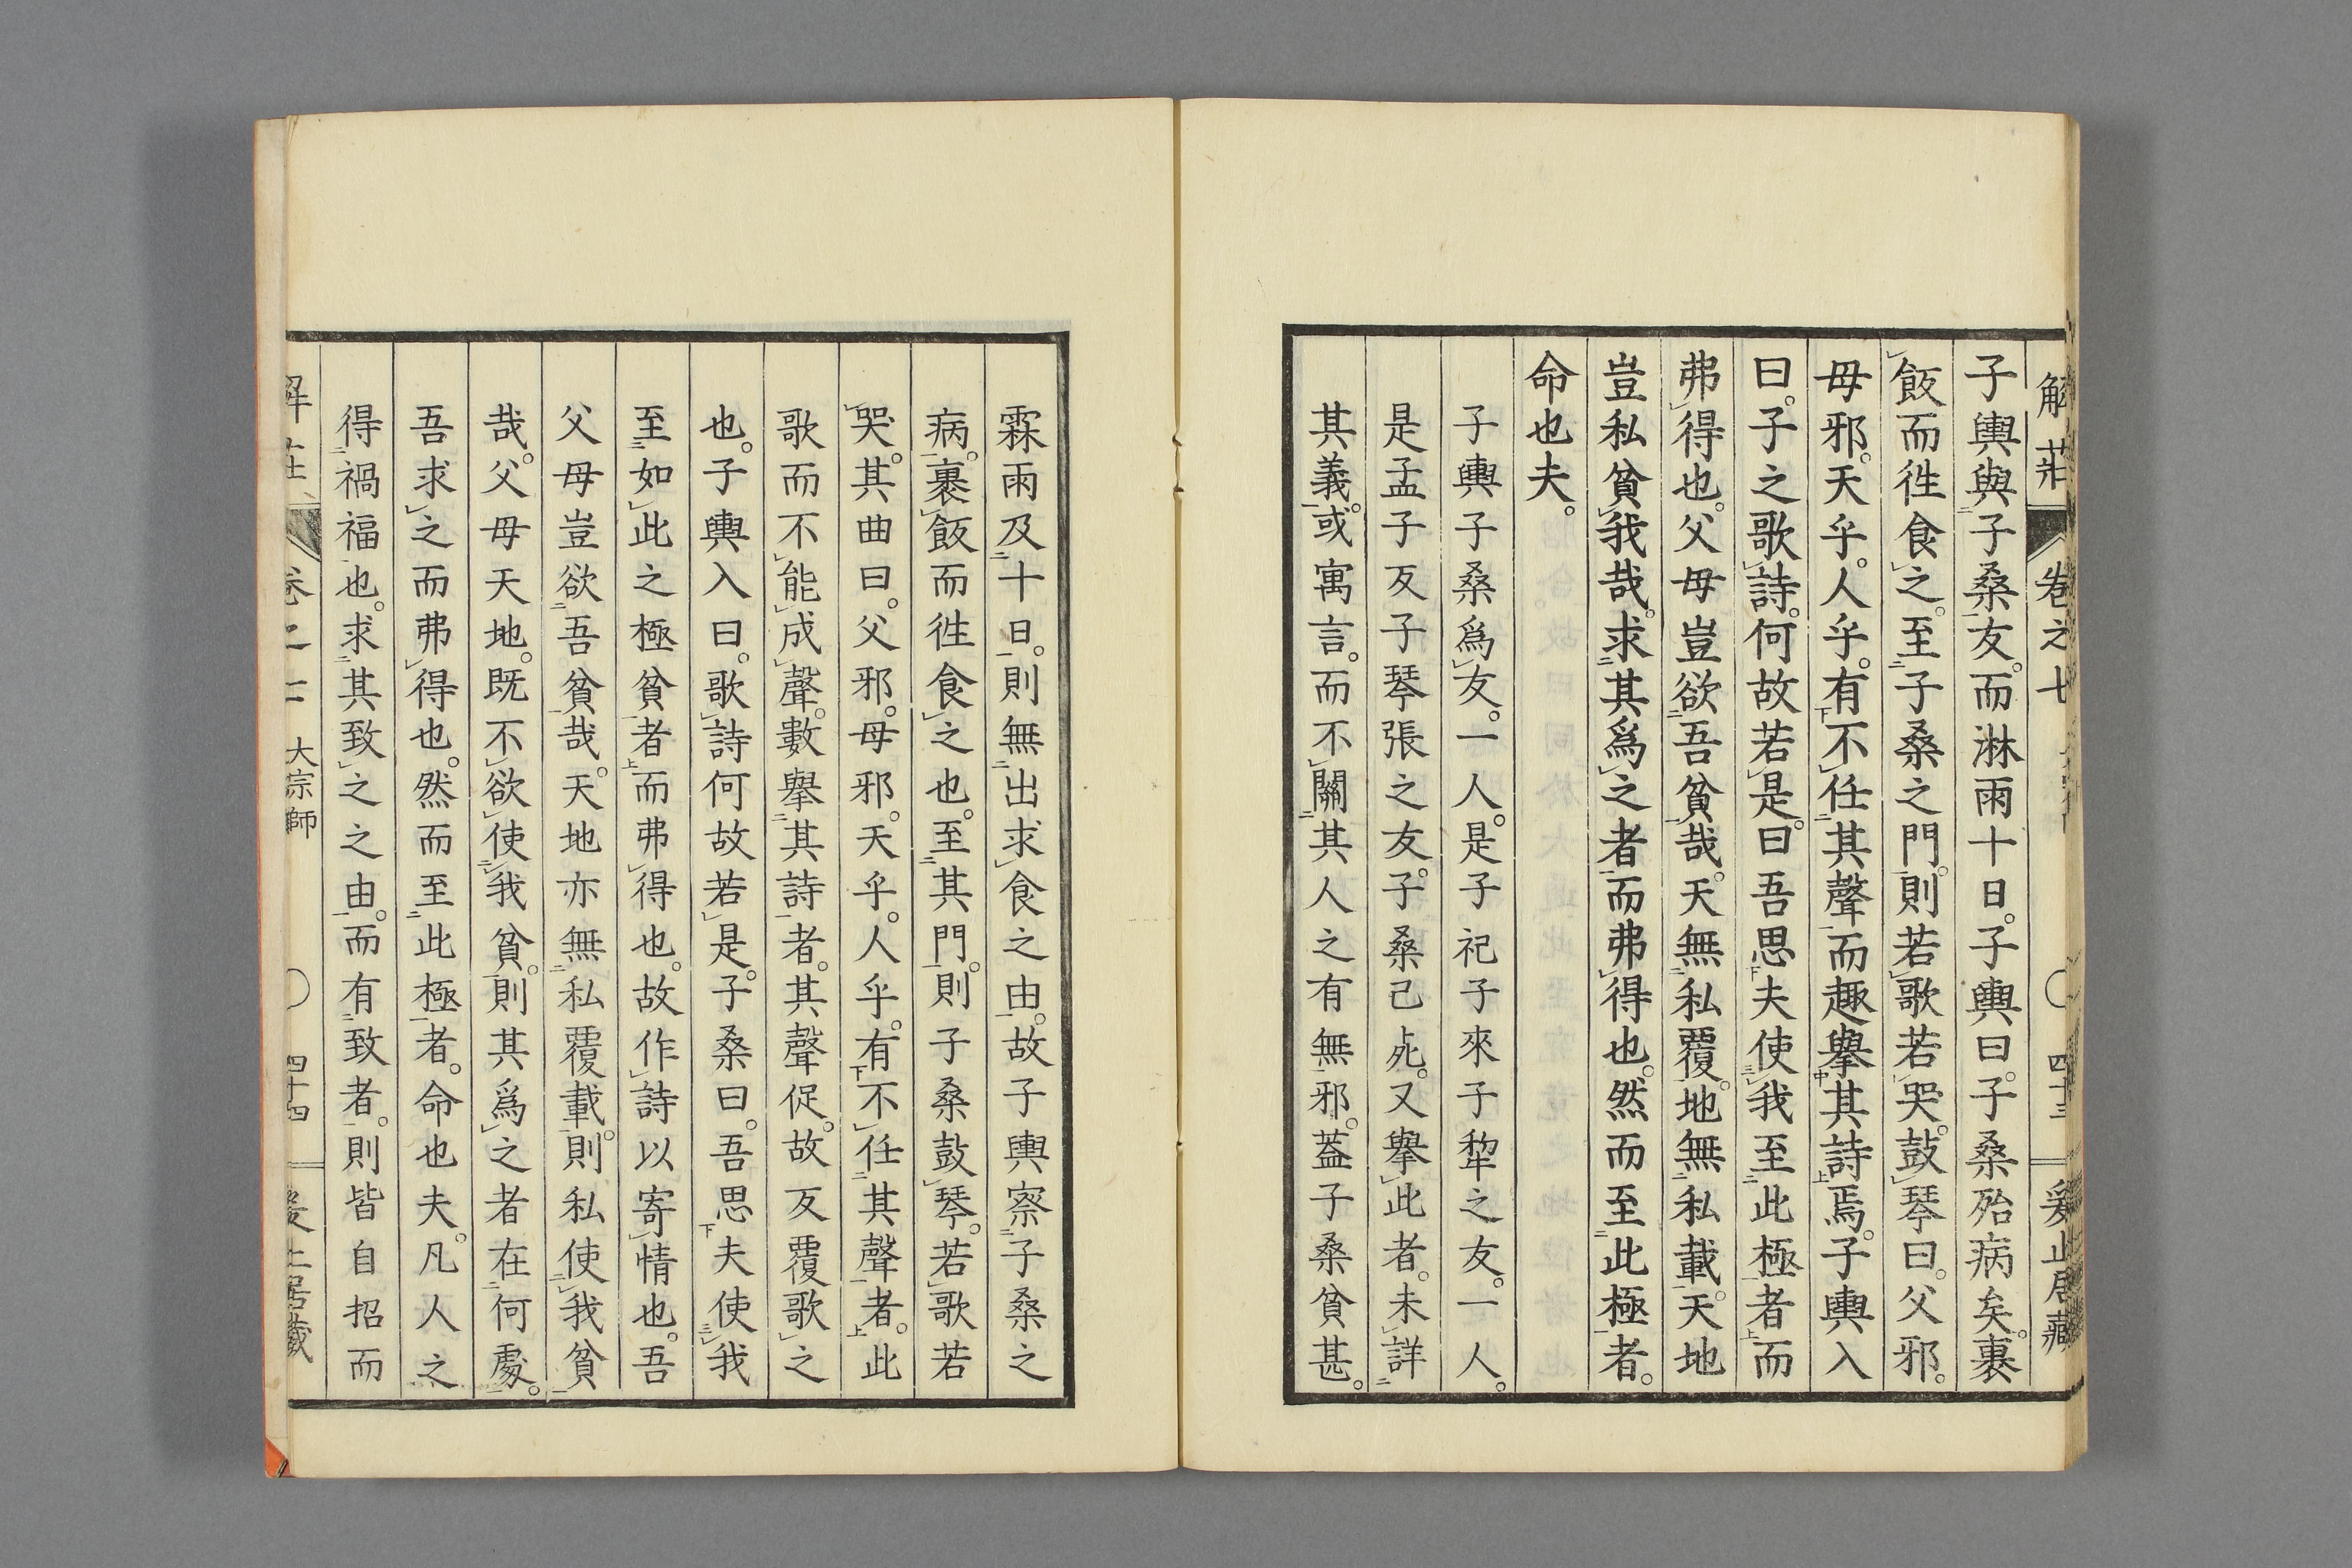 解莊 卷之七 四十三 爰止居藏
子輿與子桑友。而淋雨十日。子輿曰。子桑殆病矣。裹
飯而徃食之。至子桑之門。則若歌若哭。鼓琴曰。父邪。
母邪。天乎。人乎。有不任其聲而趣擧其詩焉。子輿入
曰。子之歌詩。何故若是。曰吾思夫使我至此極者而
弗得也。父母豈欲吾貧哉。天無私覆。地無私載。天地
豈私貧我哉。求其爲之者而弗得也。然而至此極者。
命也夫。
子輿子桑爲友。一人。是子祀子來子犂之友。一人。
是孟子反子琴張之友。子桑已死。又擧此者。未詳
其義。或寓言。而不關其人之有無邪。葢子桑貧甚。
霖雨及十日。則無出求食之由。故子輿察子桑之
病。裹飯而徃食之也。至其門。則子桑鼓琴。若歌若
哭。其曲曰。父邪。母邪。天乎。人乎。有不任其聲者。此
歌而不能成聲。數擧其詩者。其聲促。故反覆歌之
也。子輿入曰。歌詩何故若是。子桑曰。吾思夫使我
至如此之極貧者而弗得也。故作詩以寄情也。吾
父母豈欲吾貧哉。天地亦無私覆載。則私使我貧
哉。父母天地。既不欲使我貧。則其爲之者在何處。
吾求之而弗得也。然而至此極者。命也夫。凡人之
得禍福也。求其致之之由。而有致者。則皆自招而
解莊 卷之七 大宗師 四十四 爰止居藏